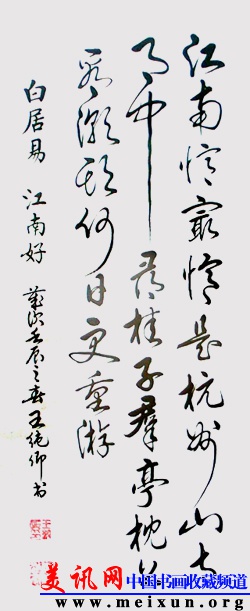 江南憶最憶是杭州山寺
月中尋桂子郡亭枕上
看潮頭何日更重游
白居易 江南好 歲次壬辰之春王純卿書
美讯网 中国书画收藏频道
www.meixun.org